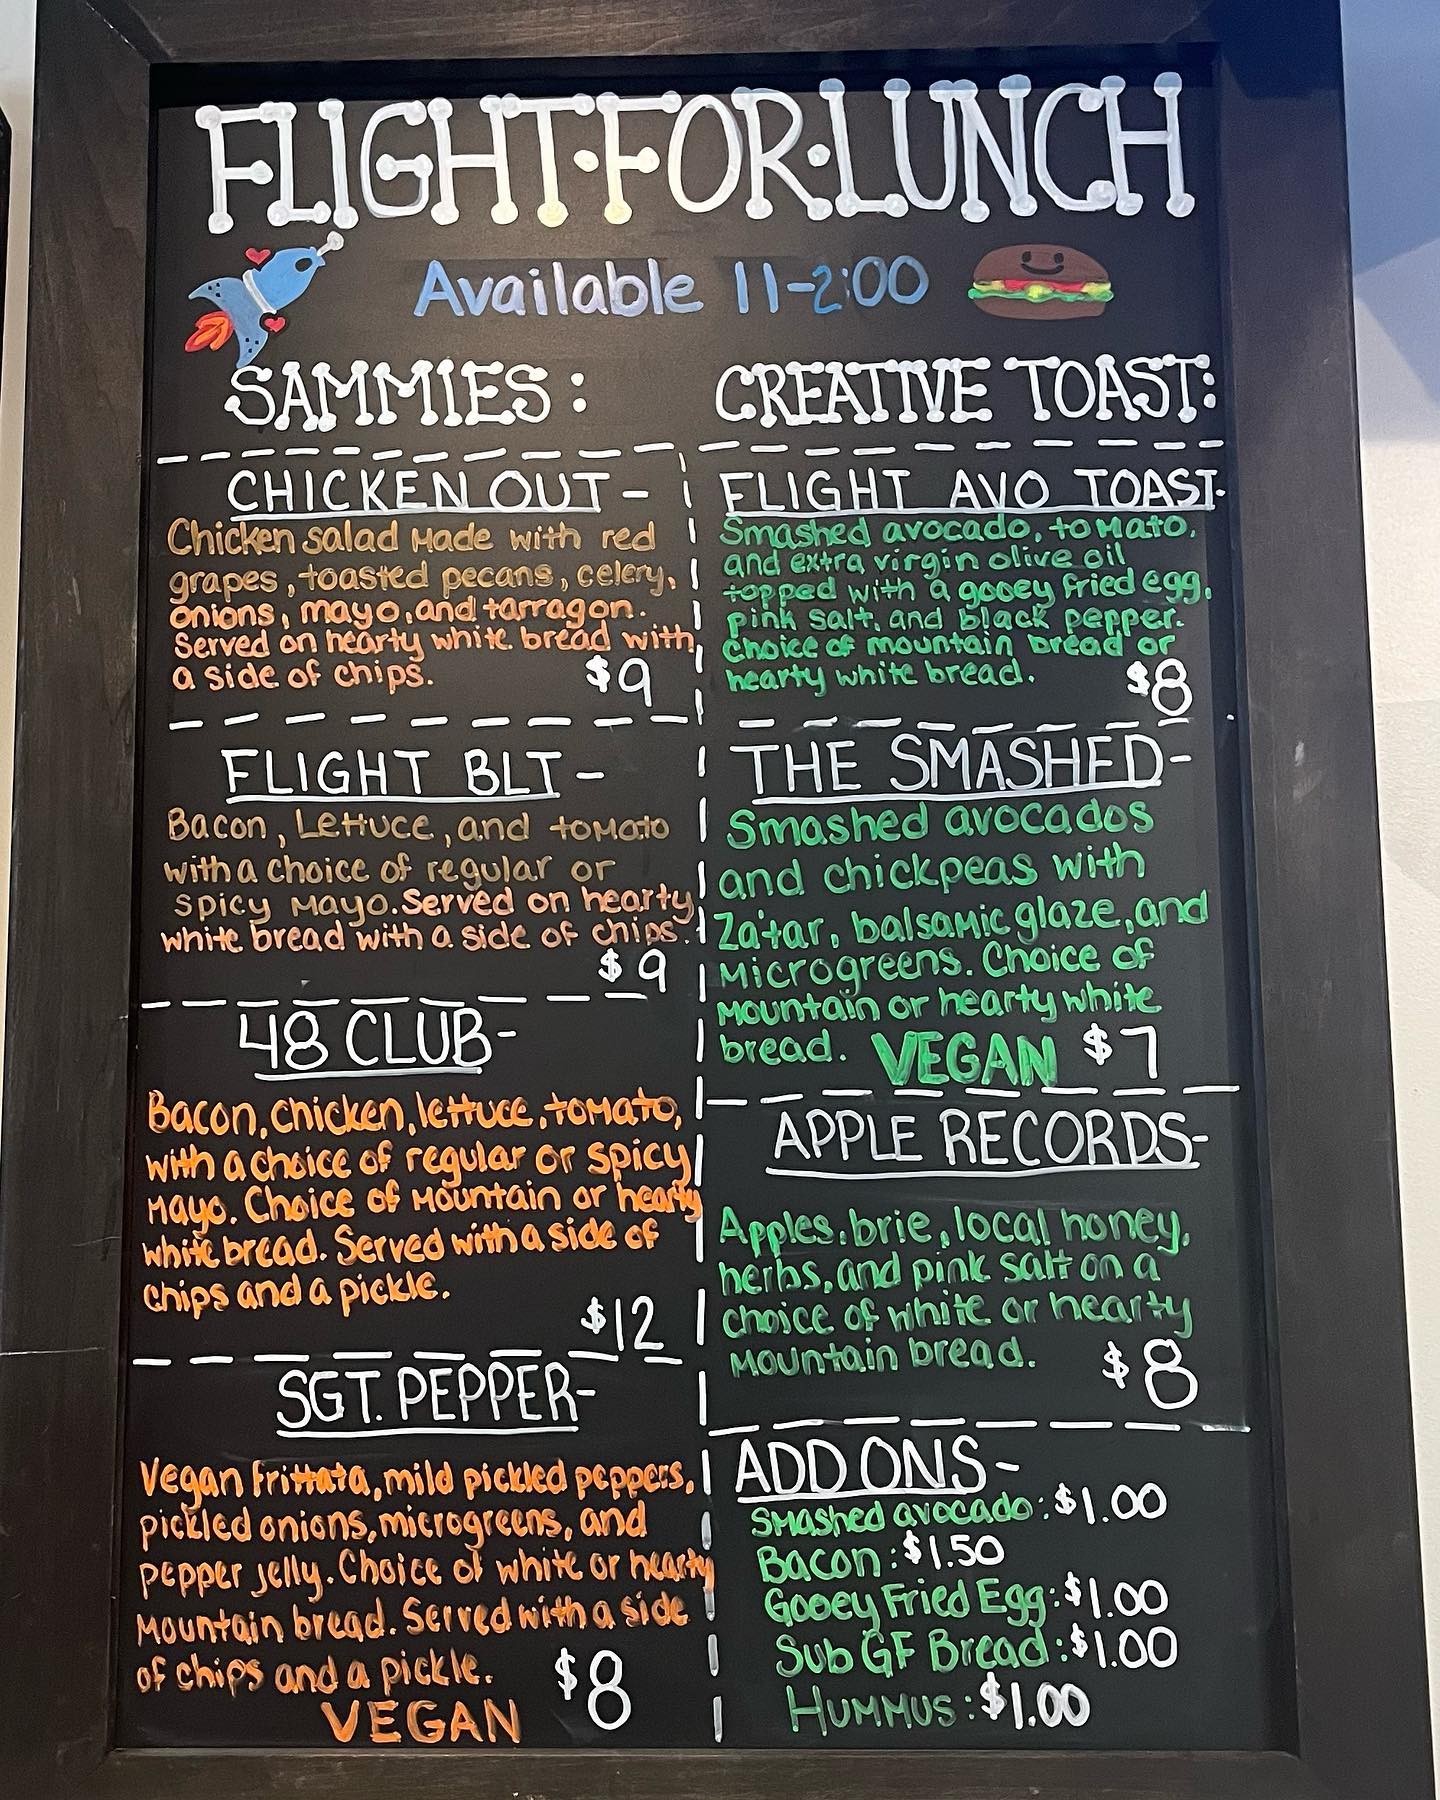 FLIGHT·FOR·LUNCH
Available 11-2:00
SAMMIES:
CHICKEN OUT-
Chicken salad made with red
grapes, toasted pecans, celery,
onions, mayo, and tarragon.
Served on hearty white bread with
a side of chips.
$9
FLIGHT BLT-
Bacon, Lettuce, and tomato
with a choice of regular or
spicy mayo. Served on hearty
white bread with a side of chips.
$9
48 CLUB-
Bacon, chicken, lettuce, tomato,
with a choice of regular or spicy
mayo. Choice of mountain or hearty
white bread. Served with a side of
chips and a pickle.
$12
SGT. PEPPER-
Vegan frittata, mild pickled peppers,
pickled onions, microgreens, and
pepper jelly. Choice of white or hearty
mountain bread. Served with a side
of chips and a pickle.
$8
VEGAN
CREATIVE TOAST:
FLIGHT AVO TOAST-
Smashed avocado, tomato,
and extra virgin olive oil
topped with a gooey fried egg,
pink salt, and black pepper.
Choice of mountain bread or
hearty white bread.
$8
THE SMASHED-
Smashed avocados
and chickpeas with
Za'tar, balsamic glaze, and
microgreens. Choice of
mountain or hearty white
bread. VEGAN $7
APPLE RECORDS-
Apples, brie, local honey,
herbs, and pink salt on a
choice of white or hearty
mountain bread.
$8
ADD ONS-
Smashed avocado: $1.00
Bacon: $1.50
Gooey Fried Egg: $1.00
Sub GF Bread: $1.00
Hummus: $1.00